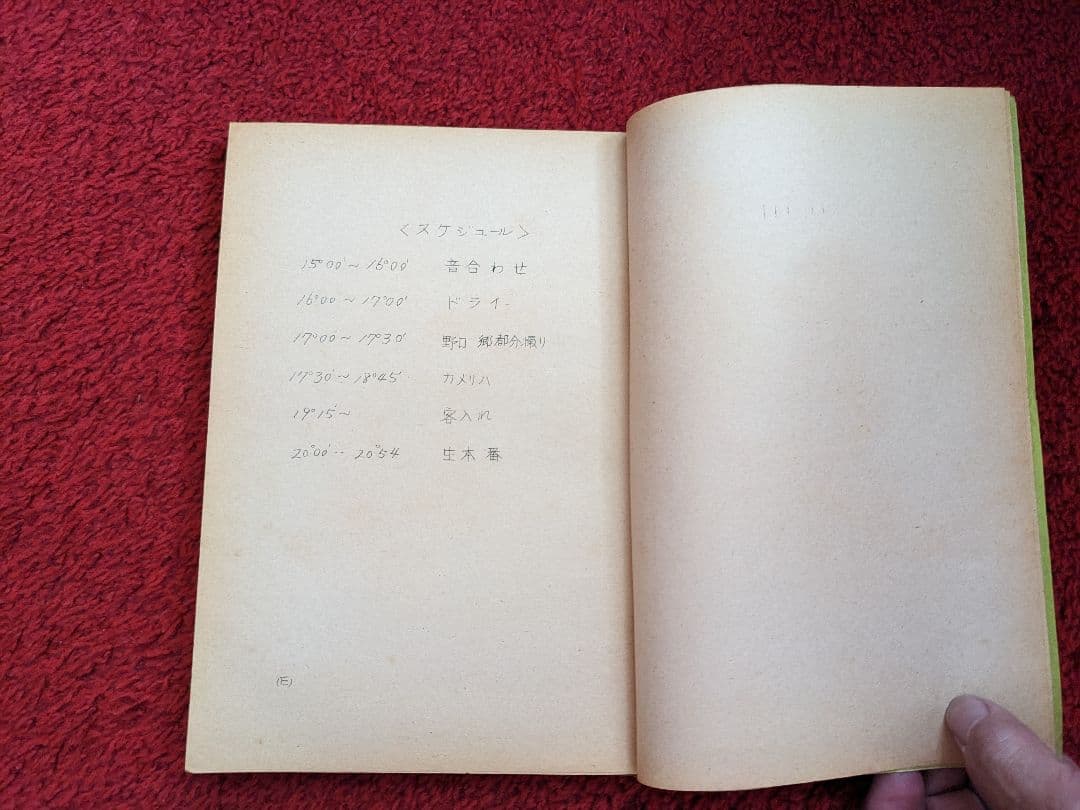 〈スケジュール〉
15°00'～16°00' 音合わせ
16°00'～17°00' ドライ
17°00'～17°30' 野口 郷都分撮り
17°30'～18°45' カメリハ
19°15'～ 客入れ
20°00'～20°54 生本番
(E)